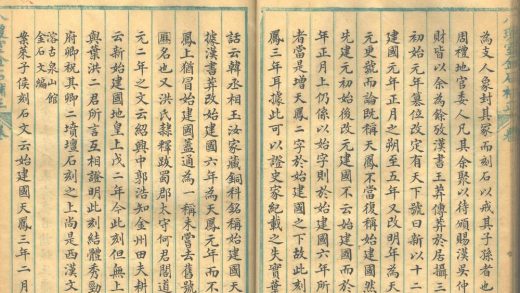 為支人象封其冢而刻石以戒其子孫者也
周禮地官委人凡其余聚以待頒賜漢吳仲
財皆以余為餘攷漢書王莽傳莽於居攝三
初始元年墓位改定有天下號曰新以十二
建國元年正月之朔至五年又改明年為天
元更號而論既稱天鳳不當復稱始建國然
先建元初始後改元建國不云始建國而於
元年正月上仍係以始字則於始建國六年所
者當是增天鳳二字於始建國之下故此刻
鳳三年耳據此可以證史家紀載之失實葉
話云韓丞相玉汝家藏銅枓銘稱始建國天
據漢書莽改始建國六年為天鳳元年而不
鳳上猶冒始建國蓋通為一稱未嘗去舊號
匠名也又洪氏隸釋跋蜀郡太守何君閣道
元二年之文云紹興中郭浩知金州田夫耕
云新始建國地皇上戊二年今此刻但無上
與葉洪二君所言互相證明此刻結體秀勁
府卿祝其卿二墳壇石刻之上尚是西漢文
溶古泉山館
金石文編
案萊子侯刻石文云始建國天鳳三年二月